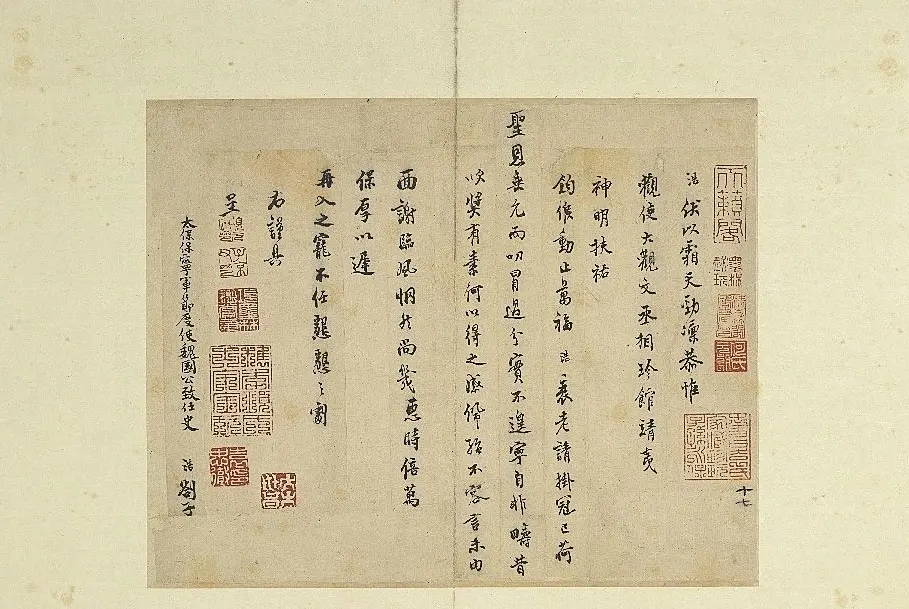 浩伏以霜天勁凜恭惟
觀使大觀文丞相珍館靖夷
神明扶祐
鈞候動止萬福浩衰老請掛冠已荷
聖恩垂允而叨冒過分實不遑寧自非疇昔
吹獎有素何以得之感佩殆不容言未由
西謝臨風惘然尚幾惠時倍萬
保厚以遲
再入之寵不任懇懇之劄
右謹具
呈
太保保寧軍節度使魏國公致仕史浩劄子
十七